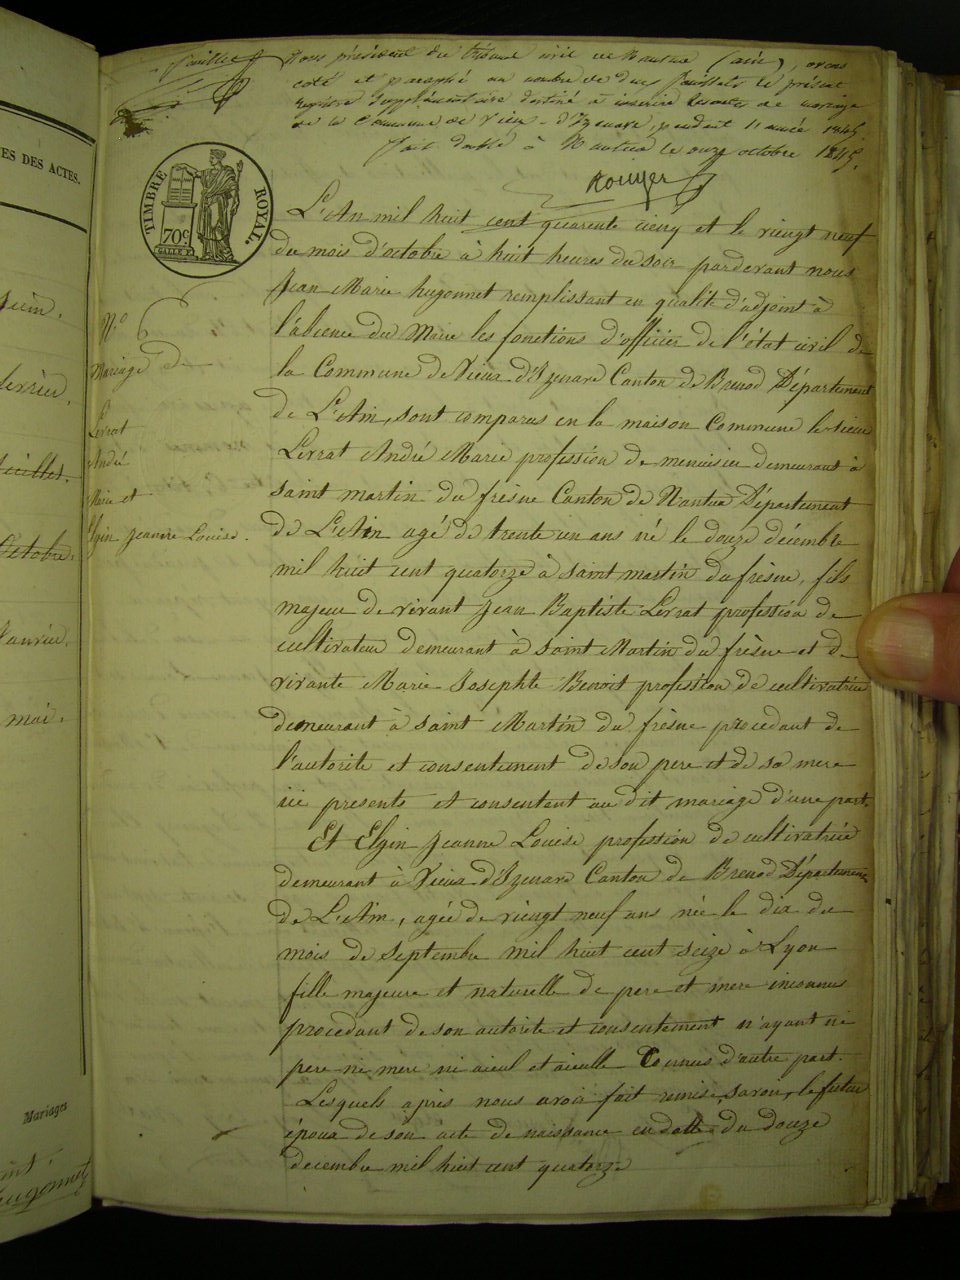 ES DES ACTES.
Juin.
février.
juillet.
Octobre.
Janvier.
mai.
Mariages
hugonnet
feuillet
Nous président du tribunal civil de Nantua (ain), avons
coté et paraphé au nombre de deux feuillets le présent
registre supplémentaire destiné à inscrire les actes de mariage
de la Commune de Vieu-d'Izenave, pendant l'année 1845.
fait double à Nantua le onze octobre 1845.
Rouyer
TIMBRE ROYAL.
70c
N.o 6
Mariage de
Levrat
André
Marie et
Elgin Jeanne Louise.
L'An mil huit cent quarente cienq et le viengt neuf
du mois d'octobre à huit heures du soir pardevant nous
Jean Marie hugonnet remplissant en qualité d'adjoint à
l'absence du Maire les fonctions d'officier de l'état civil de
la Commune de Vieux d'Izenave Canton de Brenod Département
de L'Ain, sont comparus en la maison Commune le sieur
Levrat André Marie profession de menuisier demeurant à
saint martin du fresne Canton de Nantua Département
de L'Ain agé de trente un ans né le douze décembre
mil huit cent quatorze à saint martin du fresne, fils
majeur de vivant Jean Baptiste Levrat profession de
cultivateur demeurant à saint Martin du fresne et de
vivante Marie Josephte Benoit profession de cultivatrice
demeurant à saint Martin du fresne procedant de
l'autorite et consentement de son pere et de sa mere
ici presents et consentent au dit mariage d'une part.
Et Elgin Jeanne Louise profession de cultivatrice
demeurant à Vieux d'Izenave Canton de Brenod Département
de L'Ain, agée de viengt neuf ans née le dix du
mois de septembre mil huit cent seize à Lyon
fille majeure et naturelle de pere et mere inconnus
procedant de son autorite et consentement n'ayant ni
pere ni mere ni aieul et aieulle Connus d'autre part.
Lesquels après nous avoir fait remise, savoir, le futur
époux de son acte de naissance en datte du douze
decembre mil huit cent quatorze